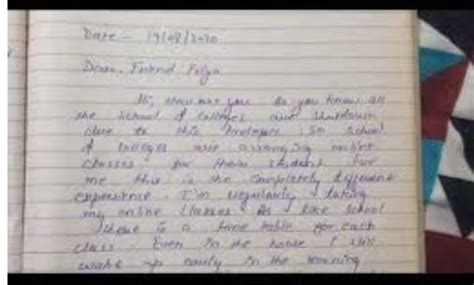 Date - 19/08/2020
Dear, Friend Priya
Hi, How are you As you know all
the School & Colleges are shutdown
due to this So school
& Colleges are arranging online
classes for their student for
me this is the completely different
experience. I'm regularly taking
my online classes As like School
there is a time table for each
class. Even in the house I still
wake up early in the morning